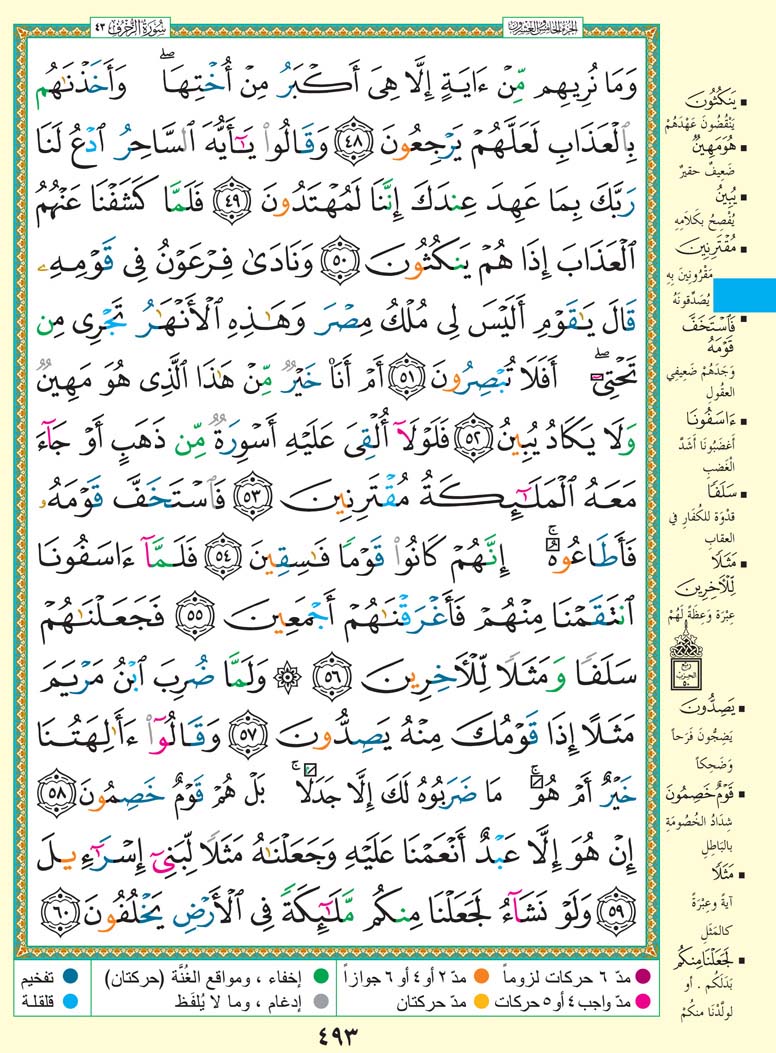 سُورَةُ الزُّخْرُفِ ٤٣
الجُزْءُ الخَامِسُ وَالعِشْرُونَ
وَمَا نُرِيهِم مِّنْ ءَايَةٍ إِلَّا هِىَ أَكْبَرُ مِنْ أُخْتِهَا ۖ وَأَخَذْنَٰهُم
بِالْعَذَابِ لَعَلَّهُمْ يَرْجِعُونَ ٤٨ وَقَالُوا يَٰٓأَيُّهَ السَّاحِرُ ادْعُ لَنَا
رَبَّكَ بِمَا عَهِدَ عِندَكَ إِنَّنَا لَمُهْتَدُونَ ٤٩ فَلَمَّا كَشَفْنَا عَنْهُمُ
الْعَذَابَ إِذَا هُمْ يَنكُثُونَ ٥٠ وَنَادَىٰ فِرْعَوْنُ فِى قَوْمِهِۦ
قَالَ يَٰقَوْمِ أَلَيْسَ لِى مُلْكُ مِصْرَ وَهَٰذِهِ الْأَنْهَٰرُ تَجْرِى مِن
تَحْتِىٓ ۖ أَفَلَا تُبْصِرُونَ ٥١ أَمْ أَنَا۠ خَيْرٌ مِّنْ هَٰذَا الَّذِى هُوَ مَهِينٌ
وَلَا يَكَادُ يُبِينُ ٥٢ فَلَوْلَآ أُلْقِىَ عَلَيْهِ أَسْوِرَةٌ مِّن ذَهَبٍ أَوْ جَآءَ
مَعَهُ الْمَلَٰٓئِكَةُ مُقْتَرِنِينَ ٥٣ فَاسْتَخَفَّ قَوْمَهُۥ
فَأَطَاعُوهُ ۚ إِنَّهُمْ كَانُوا قَوْمًا فَٰسِقِينَ ٥٤ فَلَمَّآ ءَاسَفُونَا
انتَقَمْنَا مِنْهُمْ فَأَغْرَقْنَٰهُمْ أَجْمَعِينَ ٥٥ فَجَعَلْنَٰهُمْ
سَلَفًا وَمَثَلًا لِّلْآخِرِينَ ٥٦ ۞ وَلَمَّا ضُرِبَ ابْنُ مَرْيَمَ
مَثَلًا إِذَا قَوْمُكَ مِنْهُ يَصِدُّونَ ٥٧ وَقَالُوٓا ءَأَٰلِهَتُنَا
خَيْرٌ أَمْ هُوَ ۚ مَا ضَرَبُوهُ لَكَ إِلَّا جَدَلًا ۚ بَلْ هُمْ قَوْمٌ خَصِمُونَ ٥٨
إِنْ هُوَ إِلَّا عَبْدٌ أَنْعَمْنَا عَلَيْهِ وَجَعَلْنَٰهُ مَثَلًا لِّبَنِىٓ إِسْرَٰٓءِيلَ
٥٩ وَلَوْ نَشَآءُ لَجَعَلْنَا مِنكُم مَّلَٰٓئِكَةً فِى الْأَرْضِ يَخْلُفُونَ ٦٠
يَنكُثُونَ
يَنْقُضُونَ عَهْدَهُمْ
هُوَ مَهِينٌ
ضَعِيفٌ حقيرٌ
يُبِينُ
يُفْصِحُ بِكَلَامِهِ
مُقْتَرِنِينَ
مَقْرُونِينَ بِهِ
يُصَدِّقُونَهُ
فَاسْتَخَفَّ
قَوْمَهُ
وَجَدَهُمْ ضَعِيفِي
العقُولِ
ءَاسَفُونَا
أَغضَبُونَا أَشَدَّ
الْغَضبِ
سَلَفًا
قدْوَة للكُفَارِ في
العقابِ
مَثَلًا
لِّلْآخِرِينَ
عِبْرَة وَعِظَةً لَهُمْ
ربع
الحزب
٥٠
يَصِدُّونَ
يَضِجُّونَ فَرَحاً
وَضَحِكاً
قَوْمٌ خَصِمُونَ
شِدَادُ الخُصُومَةِ
بالبَاطِلِ
مَثَلًا
آيةً وعِبْرَةً
كالمَثَلِ
لَجَعَلْنَا مِنكُم
بَدَلَكُم . أو
لولّدْنَا منكُمْ
مدّ ٦ حركات لزوماً مدّ ٢ أو ٤ أو ٦ جوازاً إخفاء ، ومواقع الغُنَّة (حركتان) تفخيم
مدّ واجب ٤ أو ٥ حركات مدّ حركتان إدغام ، وما لا يُلفَظ قلقلة
٤٩٣